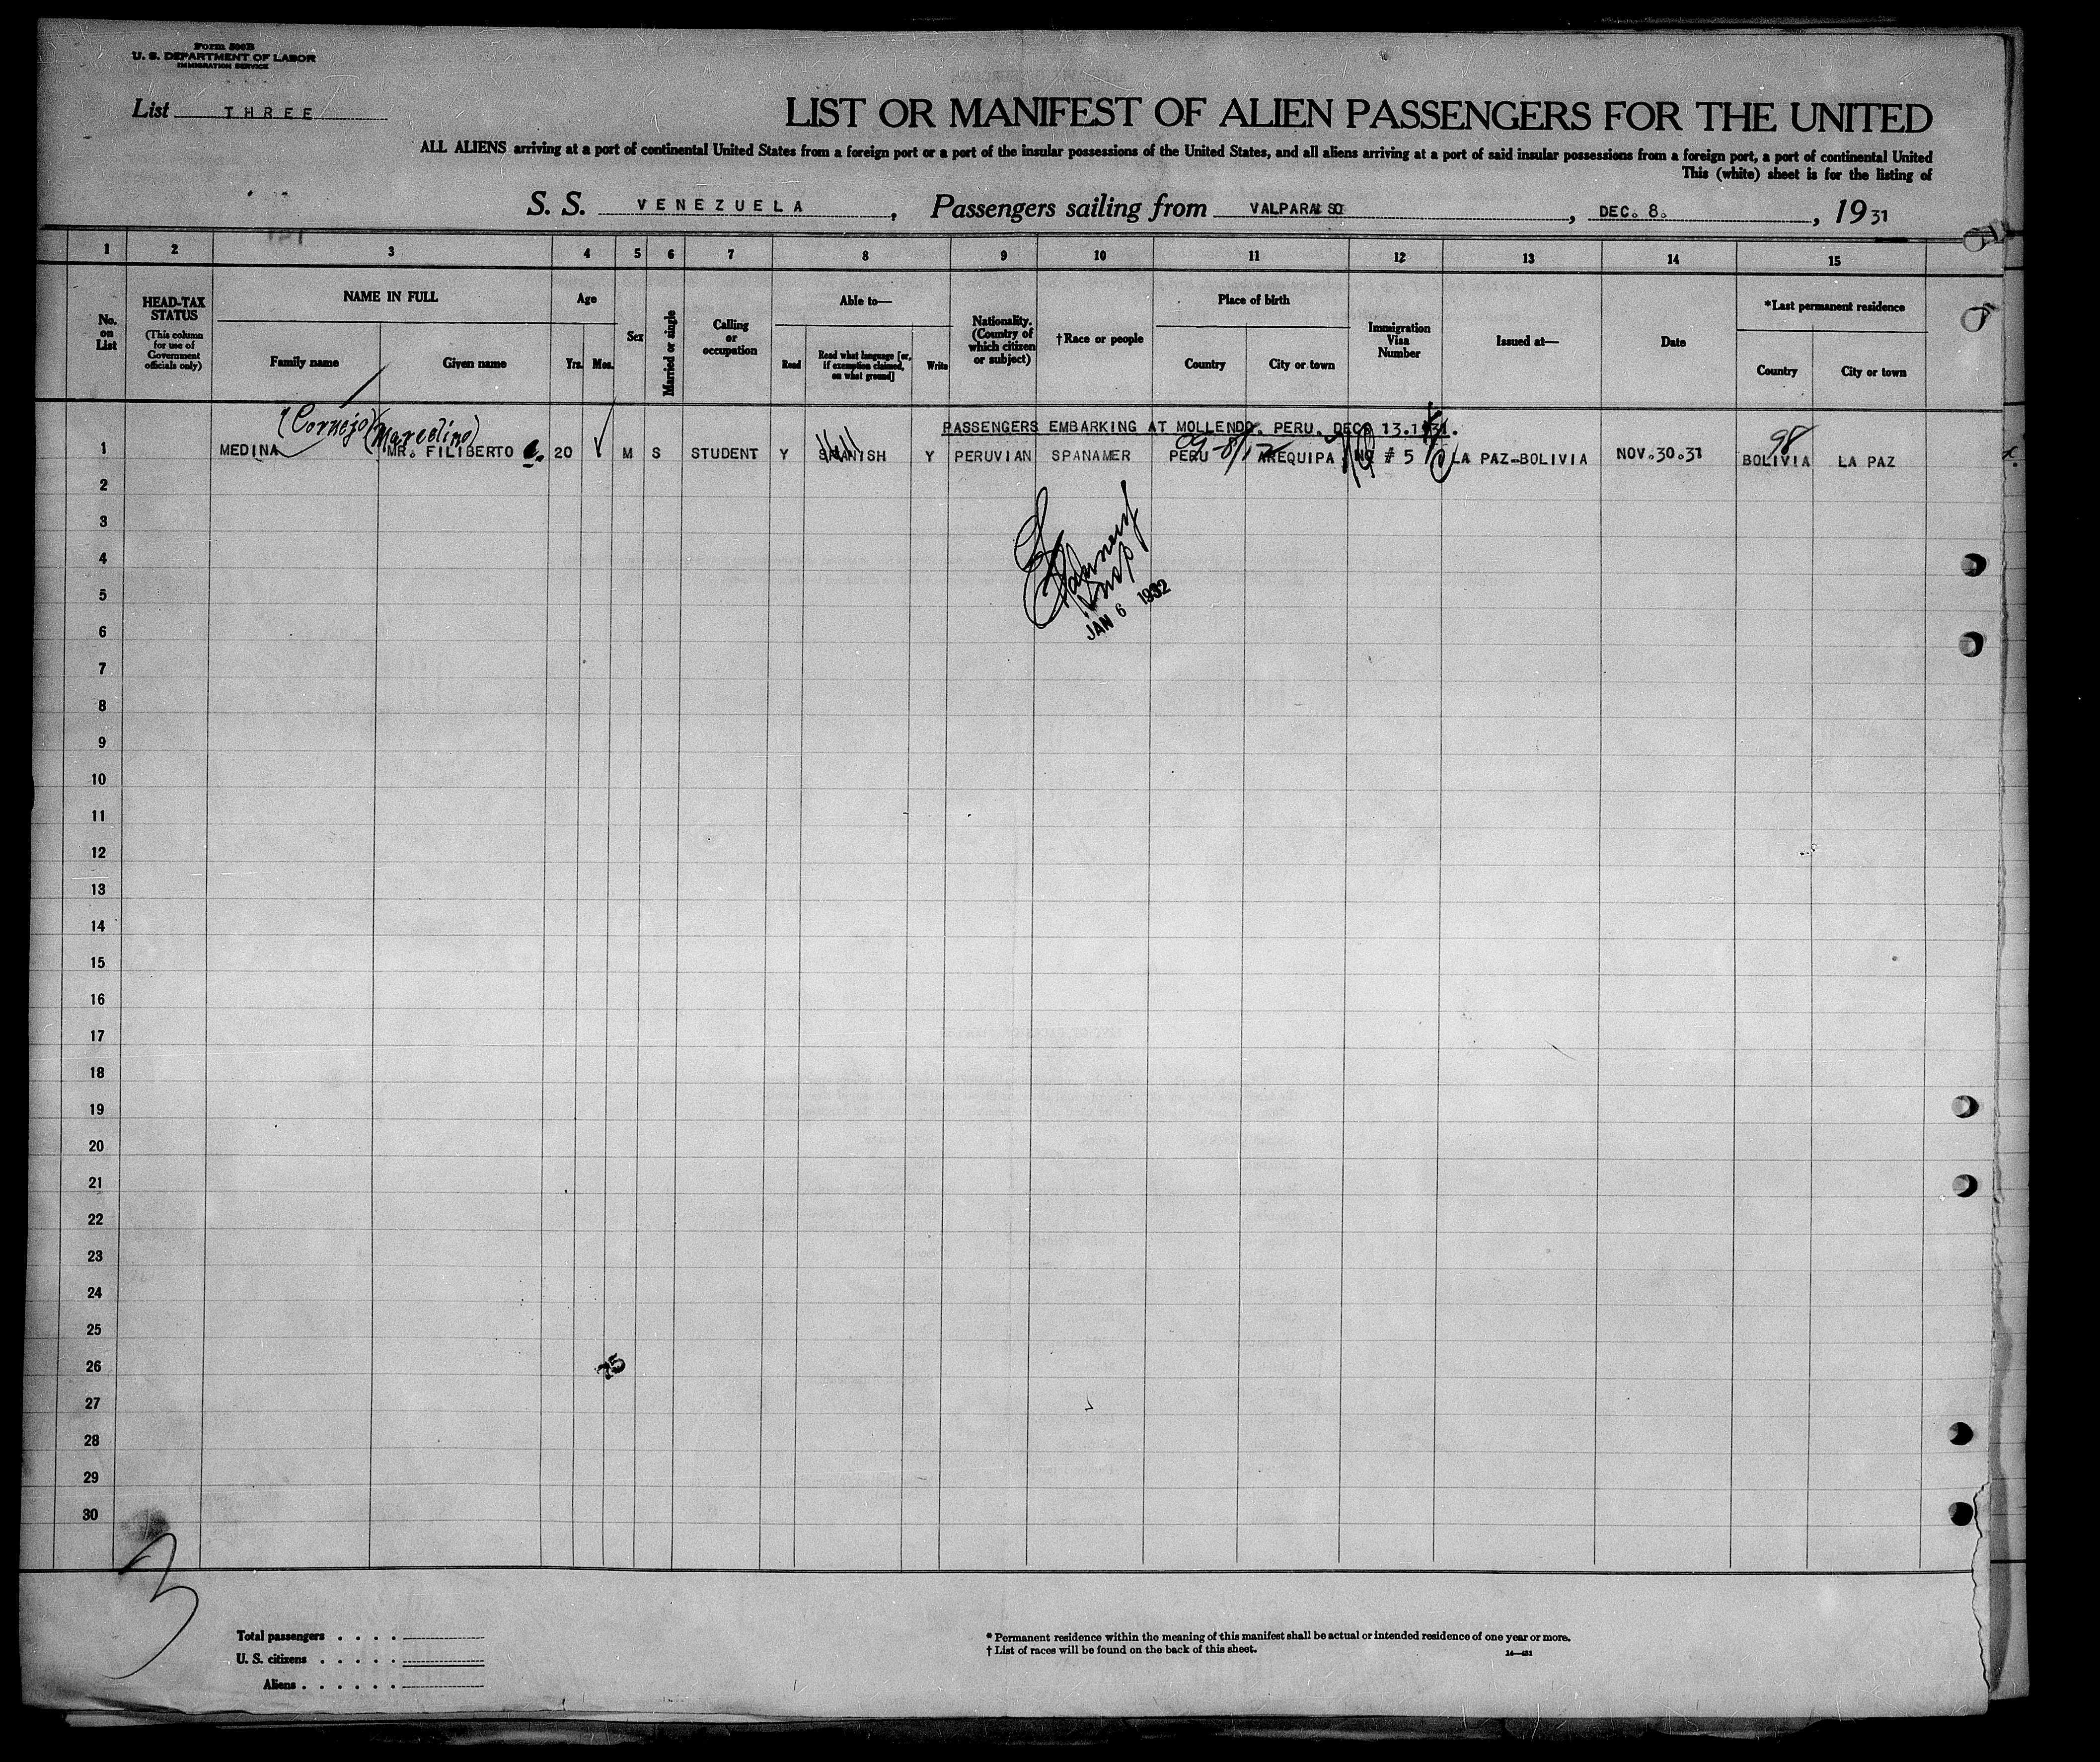 Form 500B
U. S. DEPARTMENT OF LABOR
IMMIGRATION SERVICE
List THREE
LIST OR MANIFEST OF ALIEN PASSENGERS FOR THE UNITED
ALL ALIENS arriving at a port of continental United States from a foreign port or a port of the insular possessions of the United States, and all aliens arriving at a port of said insular possessions from a foreign port, a port of continental United
This (white) sheet is for the listing of
S. S. VENEZUELA, Passengers sailing from VALPARAISO, DEC. 8., 1931
1 2 3 4 5 6 7 8 9 10 11 12 13 14 15
No. on List
HEAD-TAX STATUS
(This column for use of Government officials only)
NAME IN FULL
Family name
Given name
Age
Yrs.
Mos.
Sex
Married or single
Calling or occupation
Able to—
Read
Read what language [or, if exemption claimed, on what ground]
Write
Nationality. (Country of which citizen or subject)
†Race or people
Place of birth
Country
City or town
Immigration Visa Number
Issued at—
Date
*Last permanent residence
Country
City or town
PASSENGERS EMBARKING AT MOLLENDO. PERU. DEC. 13.1931.
(Cornejo) (Marcelino) 98
1 MEDINA MR. FILIBERTO 20 M S STUDENT Y SPANISH Y PERUVIAN SPANAMER PERU AREQUIPA NO # 5 LA PAZ-BOLIVIA NOV.30.31 BOLIVIA LA PAZ
2
3
4
5
JAN 6 1932
6
7
8
9
10
11
12
13
14
15
16
17
18
19
20
21
22
23
24
25
26
75
27
28
29
30
3
Total passengers . . . .
U. S. citizens . . . . .
Aliens . . . . . .
* Permanent residence within the meaning of this manifest shall be actual or intended residence of one year or more.
† List of races will be found on the back of this sheet.
14—431